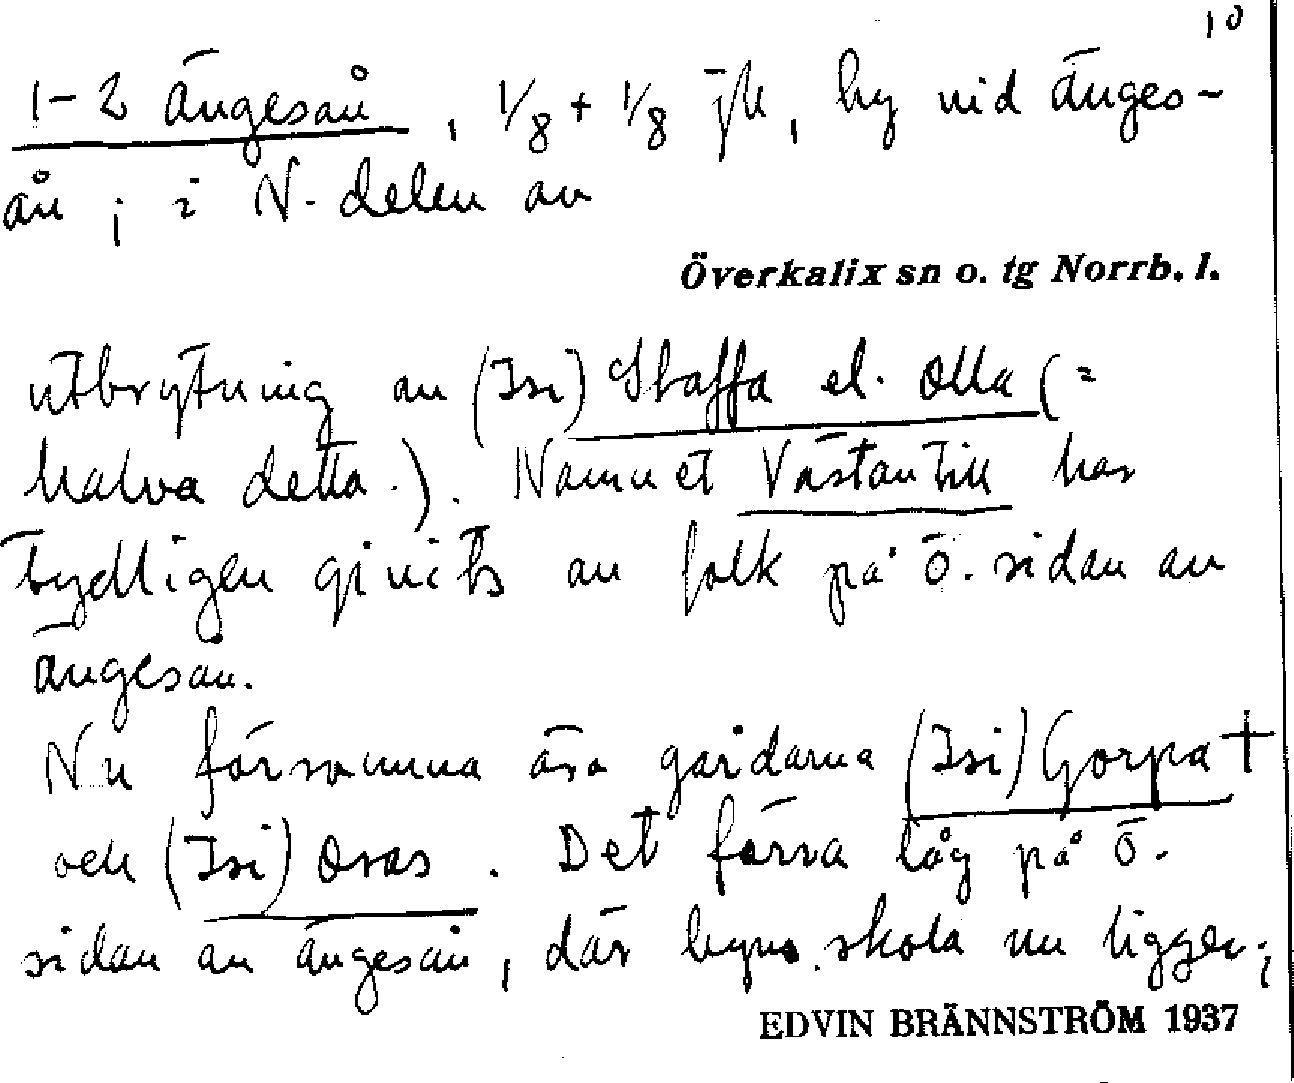 10
1-2 Ängesån, 1/8 + 1/8 jfk, by vid Änges-
ån; i N. delen av
Överkalix sn o. tg Norrb. l.
utbrytning av (Isi) Staffa el. Olla (=
halva detta.). Namnet Västantill har
tydligen givits av folk på ö. sidan av
Ängesån.
Nu försvunna äro gårdarna (Isi) Gorpa +
och (Isi) Oras. Det förra låg på ö.
sidan av Ängesån, där byns skola nu ligger;
EDVIN BRÄNNSTRÖM 1937